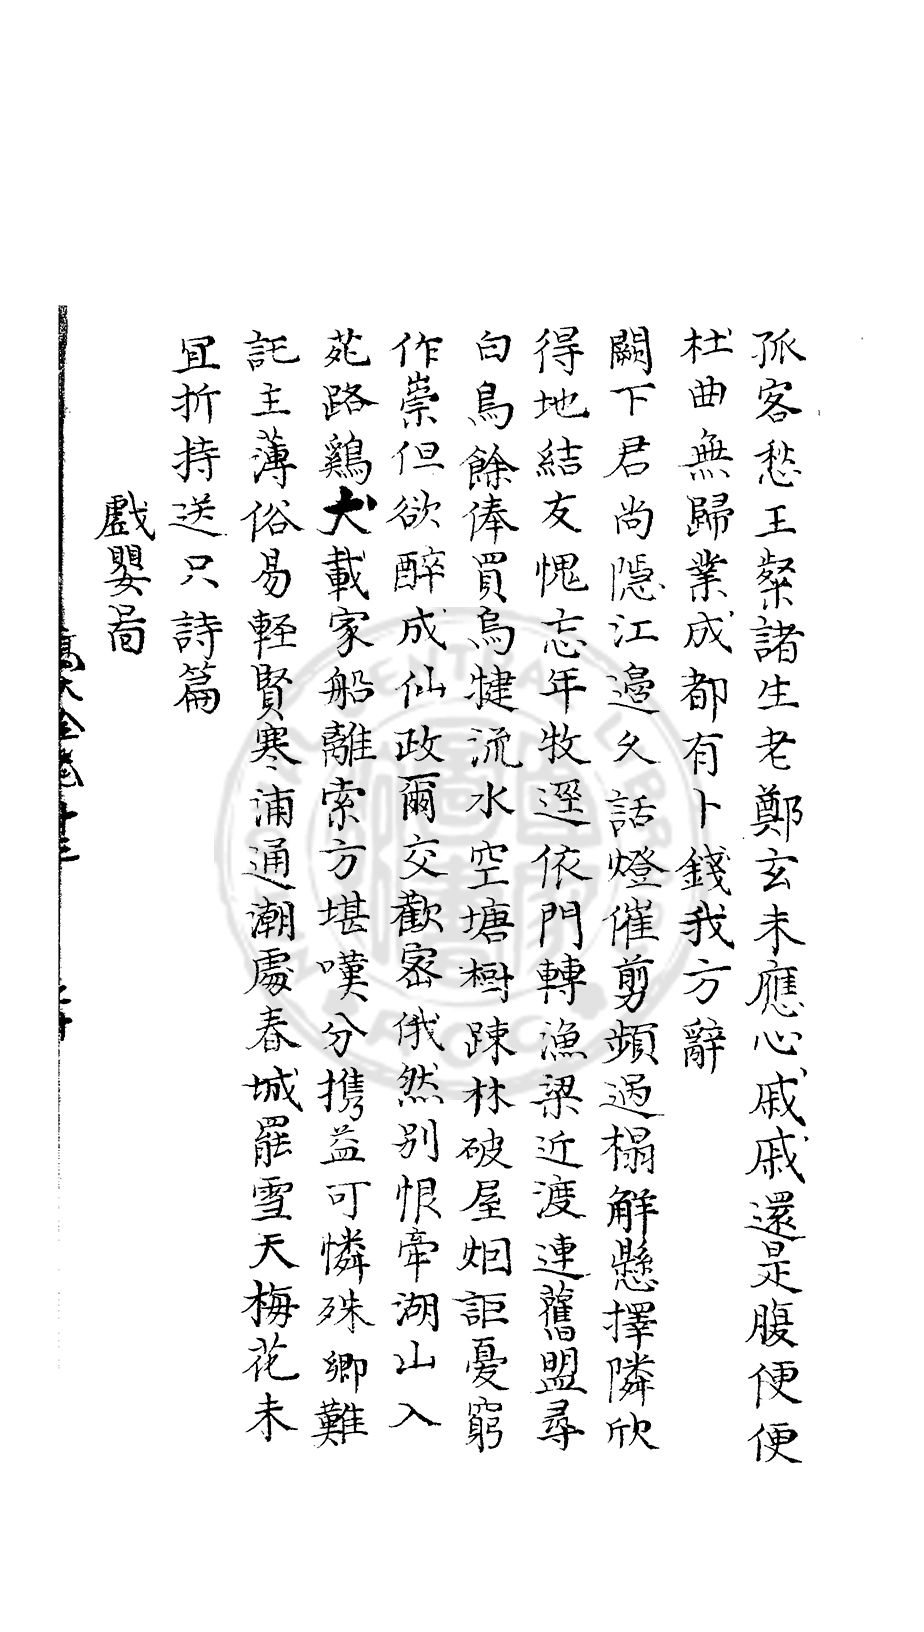 孤客愁王粲諸生老鄭玄未應心戚戚還是腹便便
杜曲無歸業成都有卜錢我方辭
闕下君尚隱江邉久話燈催剪頻過榻解懸擇隣欣
得地結友愧忘年牧逕依門轉漁梁近渡連舊盟尋
白鳥餘俸買烏犍流水空塘樹踈林破屋烟詎憂窮
作祟但欲醉成仙政爾交歡宻俄然别恨牽湖山入
苑路鷄犬載家船離索方堪嘆分携益可憐殊鄉難
託主薄俗易輕賢寒浦通潮處春城罷雪天梅花未
宜折持送只詩篇
戲嬰啚
高大全卷十三